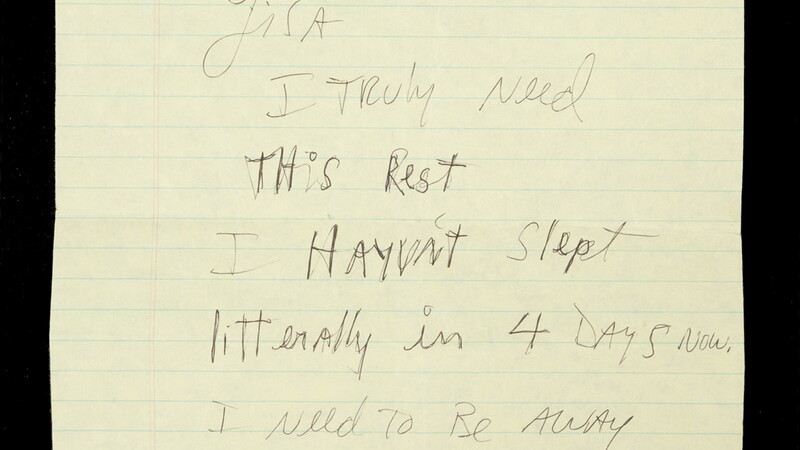 LiSA
I TRuly Need
THis Rest
I HAVENt Slept
litterally in 4 DAYS Now.
I Need To Be AWAy